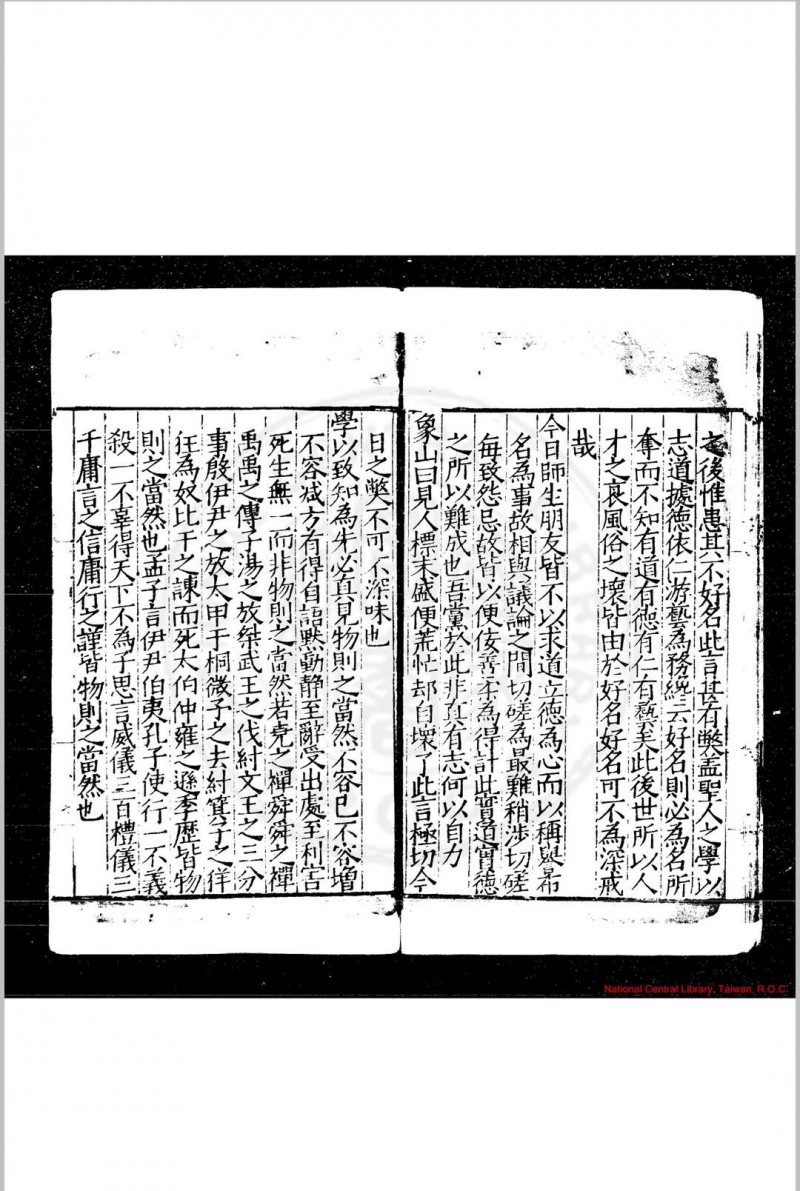 之後惟患其不好名此言甚有獘盖聖人之學以
志道據德依仁游藝為務纔云好名則必為名所
奪而不知有道有德有仁有藝矣此後世所以人
才之衰風俗之壞皆由於好名好名可不為深戒
哉
今日師生朋友皆不以求道立德為心而以稱與希
名為事故相與議論之間切磋為最難稍涉切磋
每致怨忌故皆以便佞善柔為得計此實道實德
之所以難成也吾黨於此非真有志何以自力
象山曰見人標末盛便荒忙却自壞了此言極切今
日之獘不可不深味也
學以致知為先必真見物則之當然不容已不容增
不容减方有得自語默動靜至辭受出處至利害
死生無一而非物則之當然若堯之禪舜舜之禪
禹禹之傳子湯之放桀武王之伐紂文王之三分
事殷伊尹之放太甲于桐微子之去紂箕子之佯
狂為奴比干之諫而死太伯仲雍之遜季歷皆物
則之當然也孟子言伊尹伯夷孔子使行一不義
殺一不辜得天下不為子思言威儀三百禮儀三
千庸言之信庸行之謹皆物則之當然也
National Central Library, Taiwan, R.O.C.